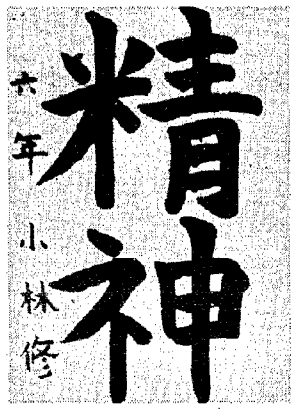 精神
六年小林修